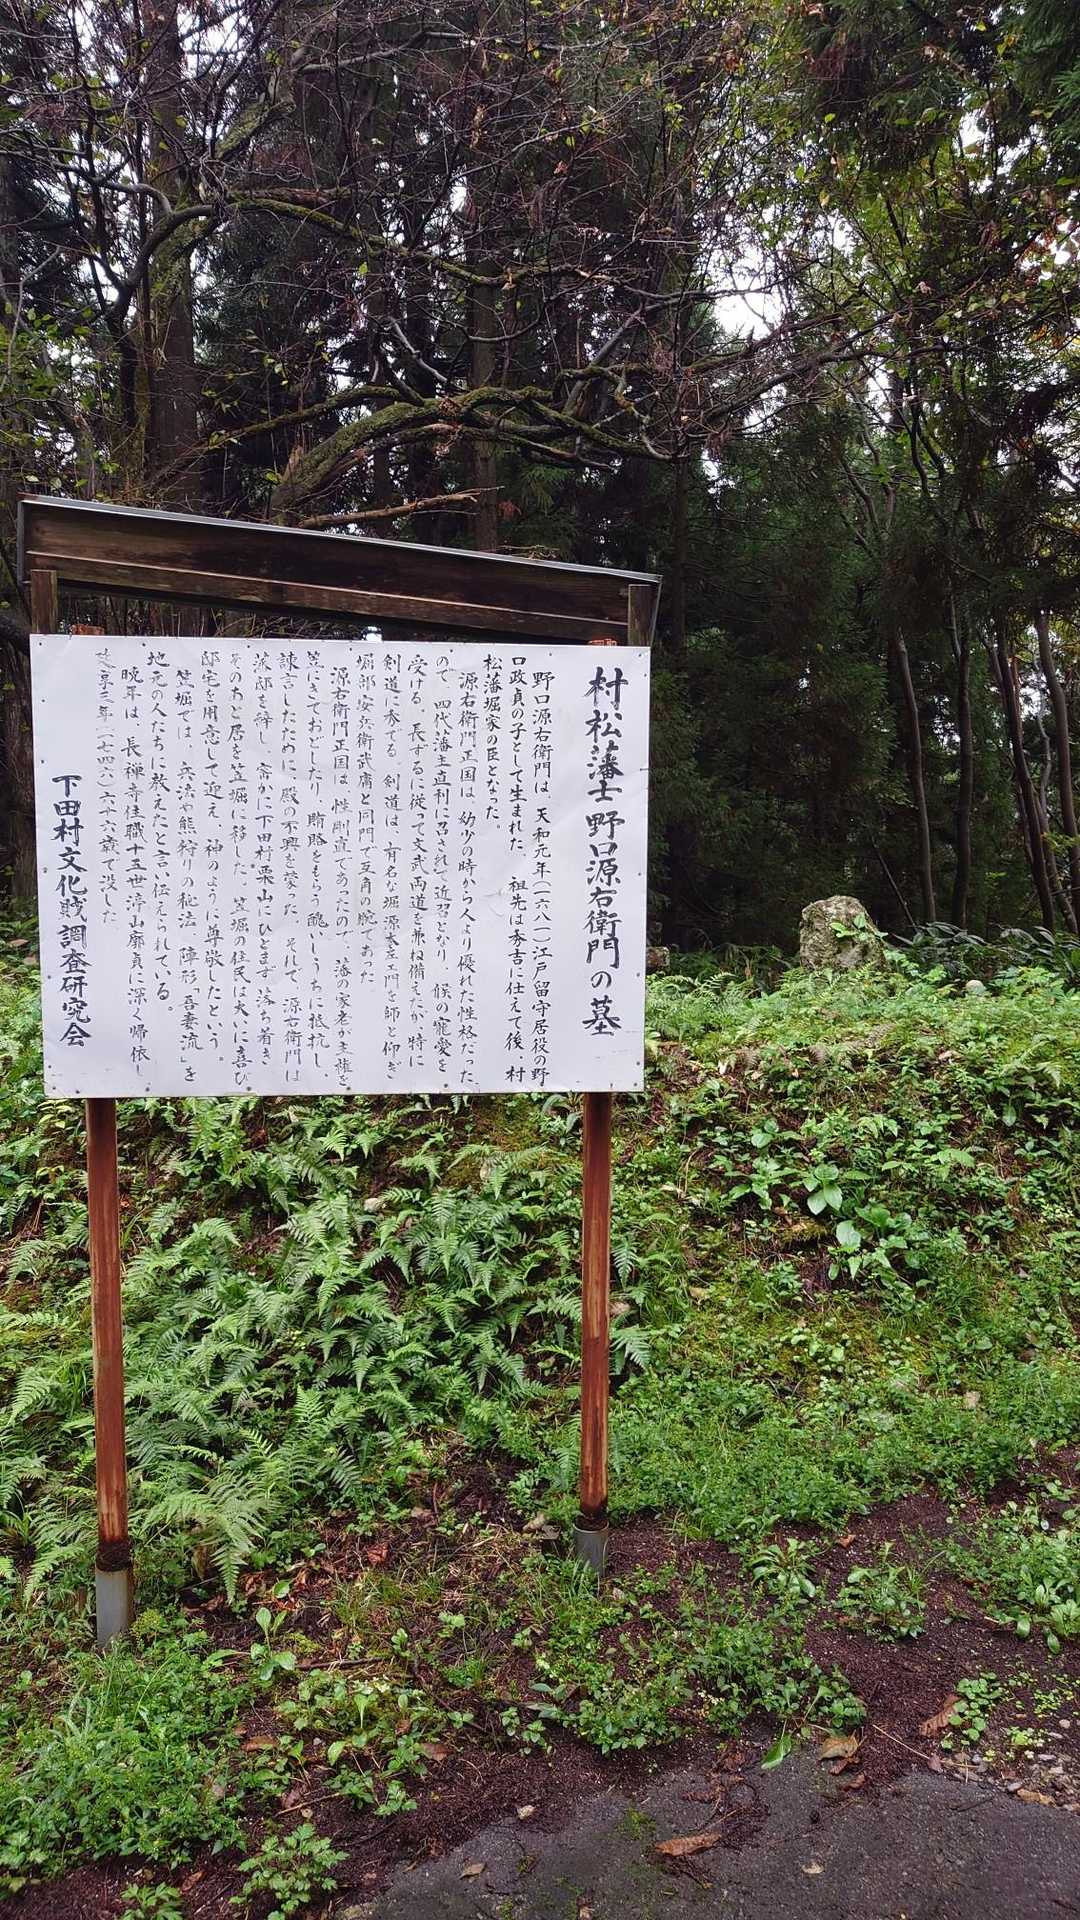 村松藩士 野口源右衛門の墓
野口源右衛門は、天和元年(一六八一)江戸留守居役の野
口政貞の子として生まれた。祖先は秀吉に仕えて後、村
松藩堀家の臣となった。
源右衛門正国は、幼少の時から人より優れた性格だった
ので、四代藩主直利に召されて近習となり、候の寵愛を
受ける。長ずるに従って文武両道を兼ね備えたが、特に
剣道に秀でる。剣道は、有名な堀源太左エ門を師と仰ぎ
堀部安兵衛武庸と同門で互角の腕であった
源右衛門正国は、性剛直であったので、藩の家老が主権を
笠にきておどしたり、賄賂をもらう醜いしうちに抵抗し、
諌言したために、殿の不興を蒙った。それで、源右衛門は
藩邸を辞し、密かに下田村栗山にひとまず落ち着き
そのあと居を笠堀に移した。笠堀の住民は大いに喜び
邸宅を用意して迎え、神のように尊敬したという。
笠堀では、兵法や熊狩りの秘法、陣形「吾妻流」を
地元の人たちに教えたと言い伝えられている。
晩年は、長禅寺住職十五世渟山廓貞に深く帰依し
延享三年(一七四六)六十六歳で没した
下田村文化財調査研究会